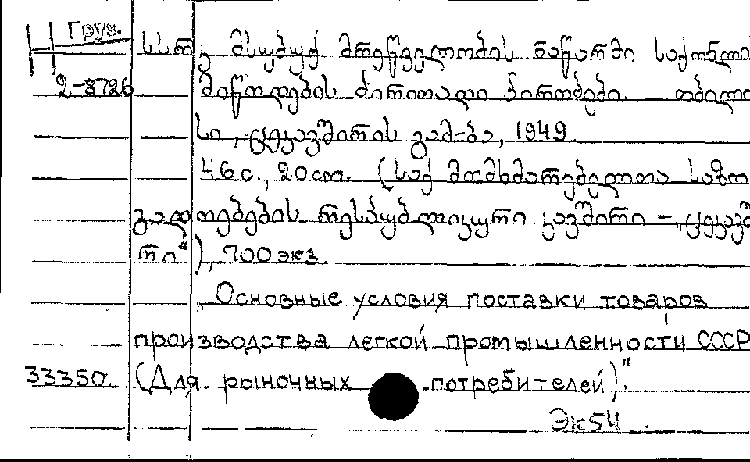 Груз.
სსრკ მსუბუქ მრეწველობის ნაწარმი საქონლის
2-3726 მიწოდების ძირითადი პირობები. თბილი-
სი, ცეკავშირის გამ-ბა, 1949.
46 с., 20 см. (საქ. მომხმარებელთა საზო-
გადოებების რესპუბლიკური კავშირი - „ცეკავში-
რი"), 700 экз.
Основные условия поставки товаров
производства легкой промышленности СССР
33350. (Для рыночных потребителей)".
Эк54